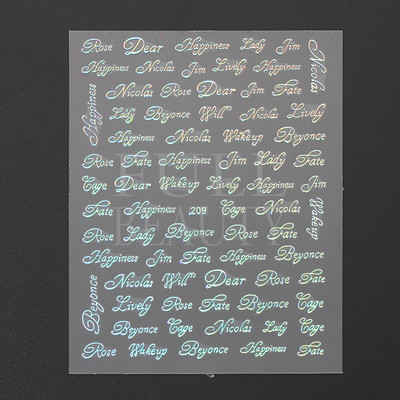 Rose Dear Happiness Lady Jim Nicolas
Happiness Nicolas Jim Lively Happiness
Happiness Nicolas Rose Dear Jim Fate
Lady Beyonce Will Nicolas Lively
Happiness Nicolas Wakeup Beyonce
Rose Fate Happiness Jim Lady Fate
FULL
Cage Dear Wakeup Lively Happiness Jim
Fate Happiness 209 Cage Nicolas Wakeup
BEAUTY
Rose Lady Beyonce Rose Fate
Happiness Jim Fate Happiness Beyonce
Beyonce Nicolas Will Dear Rose Fate
Lively Rose Fate Beyonce Cage
Beyonce Cage Nicolas Lady Cage
Rose Wakeup Beyonce Happiness Fate